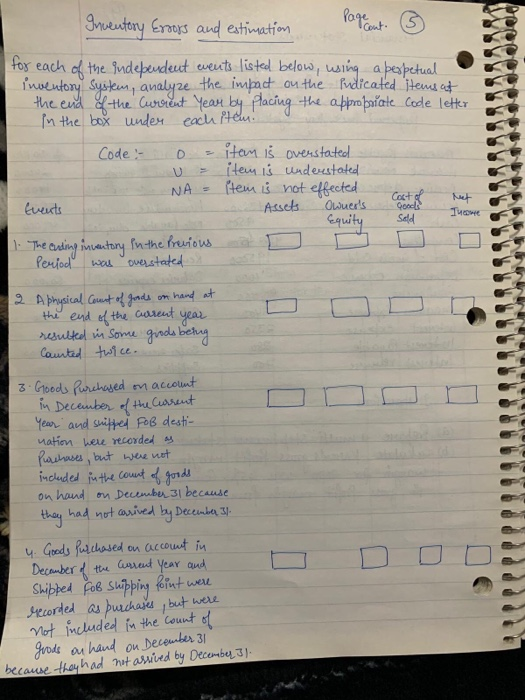 Inventory Errors and estimation
Page Cont. 5
for each of the independent events listed below, using a perpetual
inventory System, analyze the impact on the indicated items at
the end of the Current Year by placing the appropriate Code letter
in the box under each item.
Code :- O = item is overstated
U = item is understated
NA = item is not effected
Events Assets Owner's Equity Cost of Goods Sold Net Income
1. The ending inventory in the Previous
Period was overstated
2 A physical Count of goods on hand at
the end of the current year
resulted in some goods being
Counted twice.
3. Goods Purchased on account
in December of the Current
Year and shipped FOB desti-
nation were recorded as
Purchases, but were not
included in the count of goods
on hand on December 31 because
they had not arrived by December 31.
4. Goods Purchased on account in
December of the Current Year and
Shipped FOB Shipping Point were
recorded as purchases, but were
not included in the count of
goods on hand on December 31
because they had not arrived by December 31.